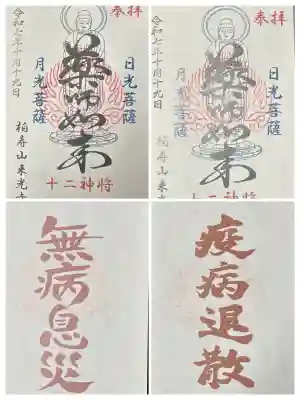 奉拝
日光菩薩
薬師如来
月光菩薩
十二神将
令和七年十月十九日
柏寿山来光寺
奉拝
日光菩薩
薬師如来
月光菩薩
十二神将
令和七年十月十九日
柏寿山来光寺
無病息災
疫病退散